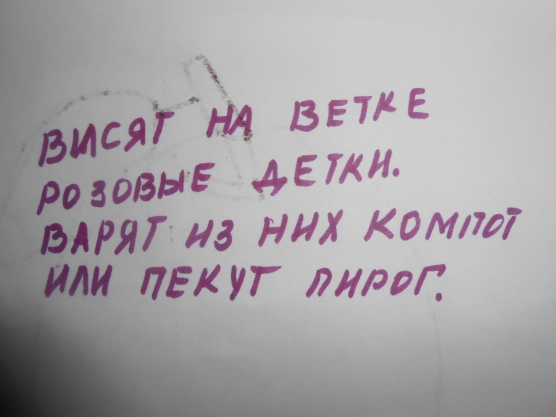 ВИСЯТ НА ВЕТКЕ
РОЗОВЫЕ ДЕТКИ.
ВАРЯТ ИЗ НИХ КОМПОТ
ИЛИ ПЕКУТ ПИРОГ.